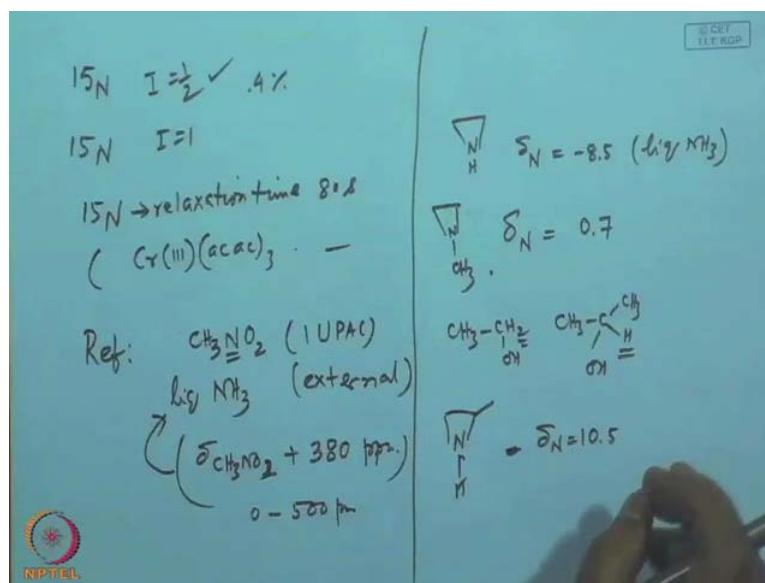 © CET
I.I.T. KGP
15N I = 1/2 ✓ .4%
15N I = 1
15N → relaxation time 80s
( Cr(III)(acac)3 . —
Ref: CH3NO2 (IUPAC)
liq NH3 (external)
(δCH3NO2 + 380 ppm)
0 – 500 pm
N
H
δN = -8.5 (liq NH3)
N
CH3 .
δN = 0.7
CH3-CH2
OH
CH3-C
CH3
H
OH
N
H
- δN = 10.5
NPTEL